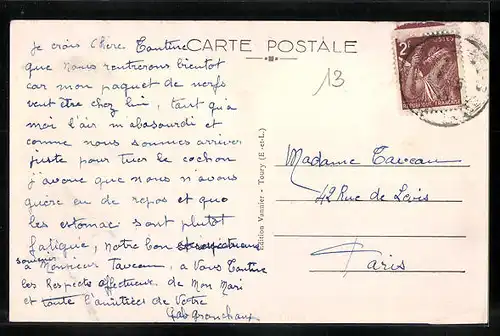 CARTE POSTALE
je crois Chère Tantine
que nous rentrerons bientot
car mon paquet de nerfs
veut être chez lui, tant qu'a
moi l'air m'abasourdi et
comme nous sommes arriver
juste pour tuer le cochon
j'avoue que nous n'avons
guère eu de repos et que
les estomac sont plutôt
fatigué, notre bon
souvenir
à Monsieur Taveau, a Vous Tantine
les Respects affectueux de Mon Mari
et toute l'amitiées de Votre
Edition Vannier - Toury (E.-et-L.)
13
2F
POSTES
REPUBLIQUE FRANÇAISE
Madame Taveau
42 Rue de Lévis
Paris